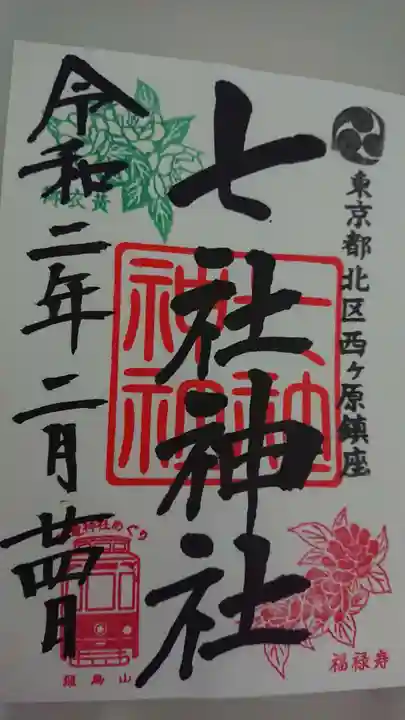 東京都北区西ヶ原鎮座
七社神社
七社神社
令和二年二月廿四日
黄
福禄寿
神社めぐり
飛鳥山